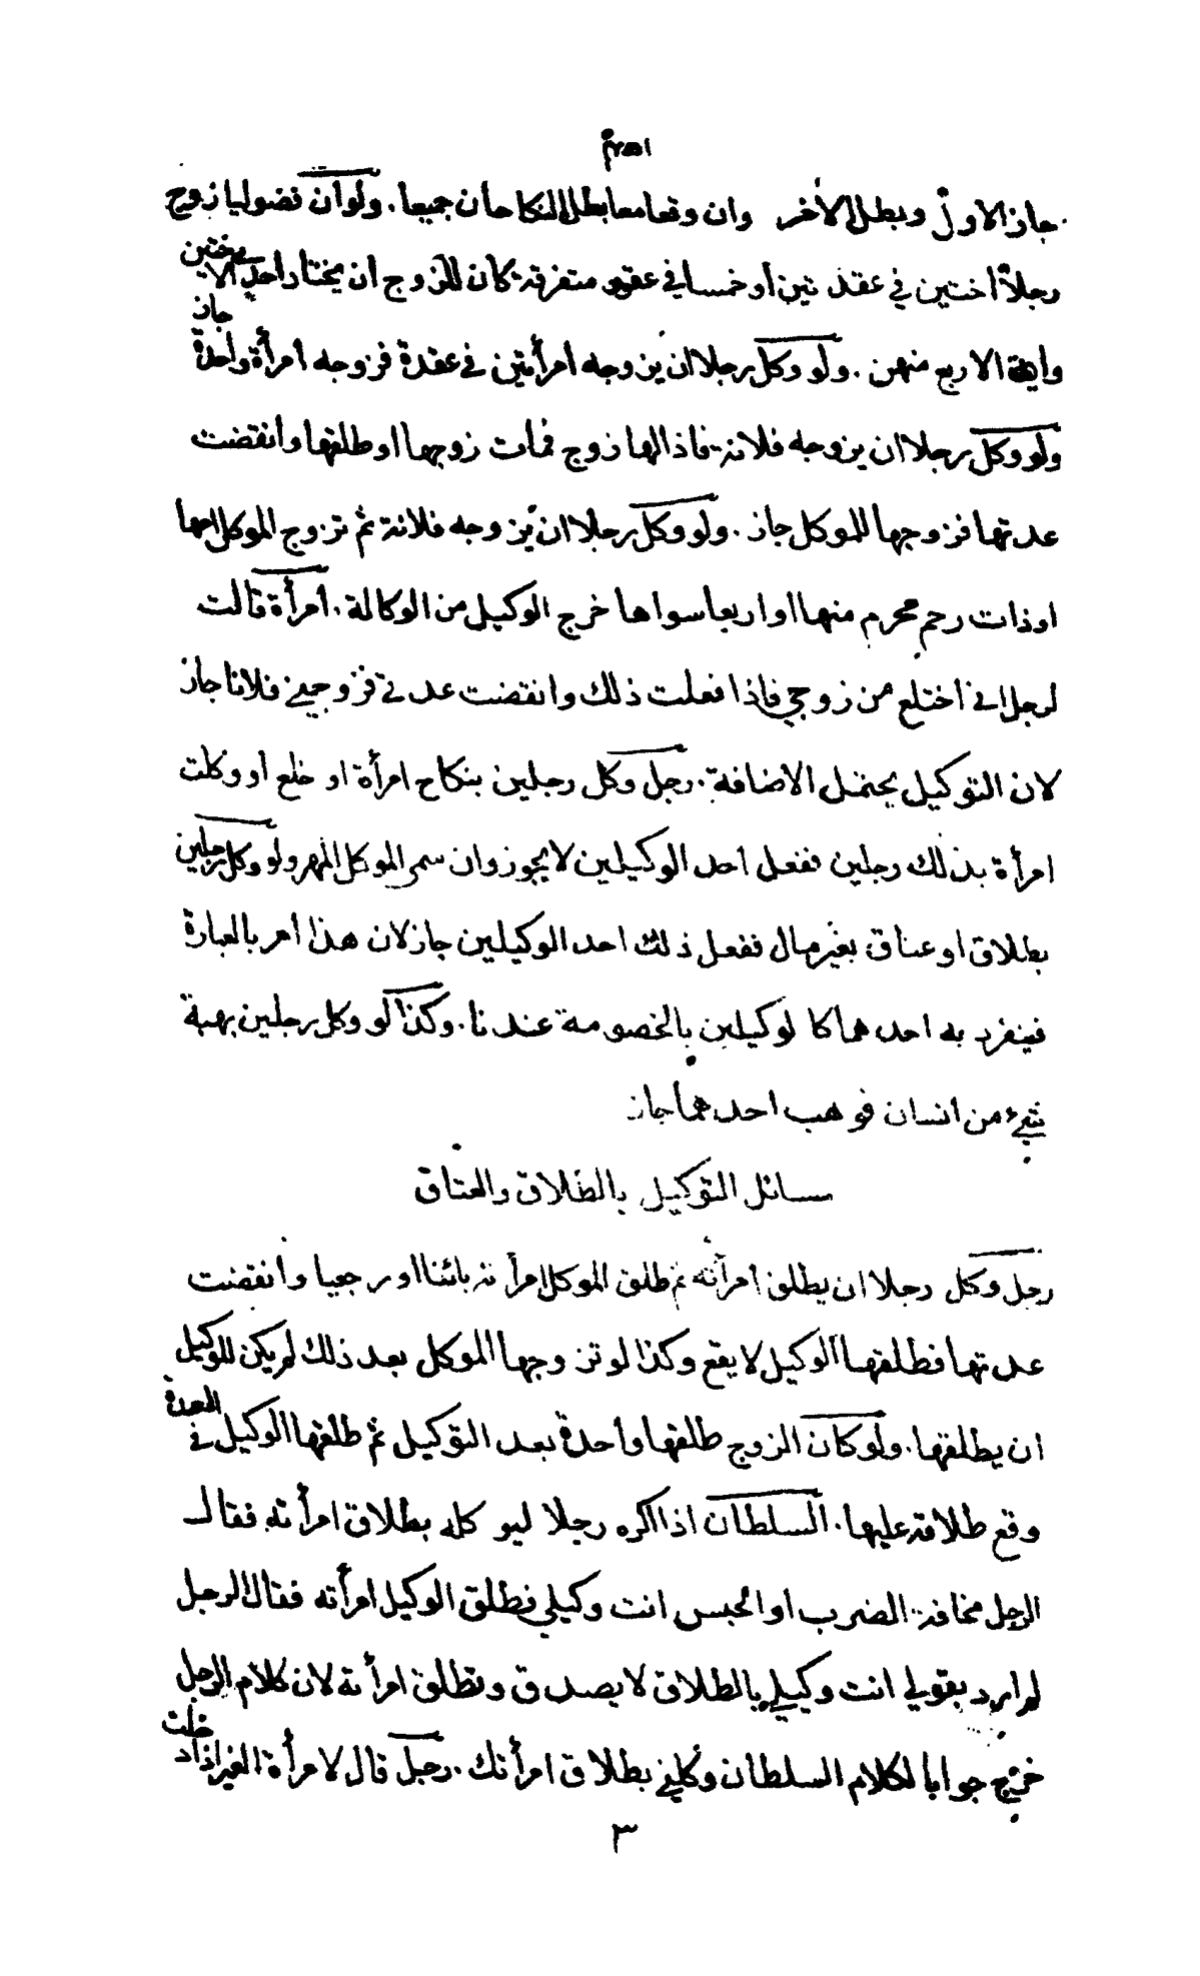 جاز الاول وبطل الاخر وان وقعا معا بطل النكاحان جميعا . ولو ان فضوليا زوج
رجلا اختين في عقدتين أو خمسا في عقود متفرقة كان للزوج ان يختار احدى الاختين
واية الاربع منهن . ولو وكل رجلا ان يزوجه امرأتين في عقدة فزوجه امرأة واحدة جاز
ولو وكل رجلا ان يزوجه فلانة فاذا لها زوج فمات زوجها او طلقها وانقضت
عدتها فزوجها للموكل جاز . ولو وكل رجلا ان يزوجه فلانة ثم تزوج الموكل امها
او ذات رحم محرم منها او اربعا سواها خرج الوكيل من الوكالة . امرأة قالت
لرجل اني اختلع من زوجي فاذا فعلت ذلك وانقضت عدتي فزوجني فلانا جاز
لان التوكيل يحتمل الاضافة . رجل وكل رجلين بنكاح امرأة او خلع او وكلت
امرأة بذلك رجلين ففعل احد الوكيلين لا يجوز وان سمى الموكل المهر ولو وكل رجلين
بطلاق او عتاق بغير مال ففعل ذلك احد الوكيلين جاز لان هذا امر بالعبارة
فينفرد به احدهما كالوكيلين بالخصومة عندنا . وكذا لو وكل رجلين بهبة
شيء من انسان فوهب احدهما جاز
مسائل التوكيل بالطلاق والعتاق
رجل وكل رجلا ان يطلق امرأته ثم طلق الموكل امرأته بائنا او رجعيا وانقضت
عدتها فطلقها الوكيل لا يقع وكذا لو تزوجها الموكل بعد ذلك لم يكن للوكيل
ان يطلقها . ولو كان الزوج طلقها واحدة بعد التوكيل ثم طلقها الوكيل في العدة
وقع طلاقه عليها . السلطان اذا اكره رجلا ليوكله بطلاق امرأته فقال
الرجل مخافة الضرب او الحبس انت وكيلي فطلق الوكيل امرأته فقال الرجل
لم ارد بقولي انت وكيلي بالطلاق لا يصدق وتطلق امرأته لان كلام الرجل
خرج جوابا لكلام السلطان وكلني بطلاق امرأتك . رجل قال لامرأة الغير اذا دخلت
٣